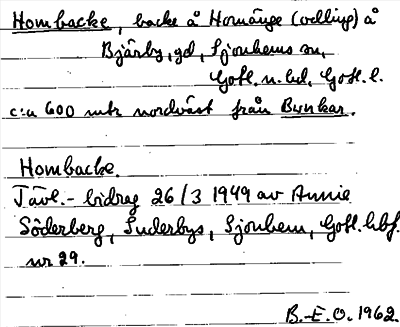 Hombacke, backe å Homänge (odling) å
Bjärby, gd, Sjonhems sn,
Gotl. n. hd, Gotl. l.
c:a 600 mtr nordväst från Bunkar.
Hombacke.
Tävl.-bidrag 26/3 1949 av Annie
Söderberg, Suderbys, Sjonhem, Gotl. hbf.
nr 29.
B.-E.O. 1962.